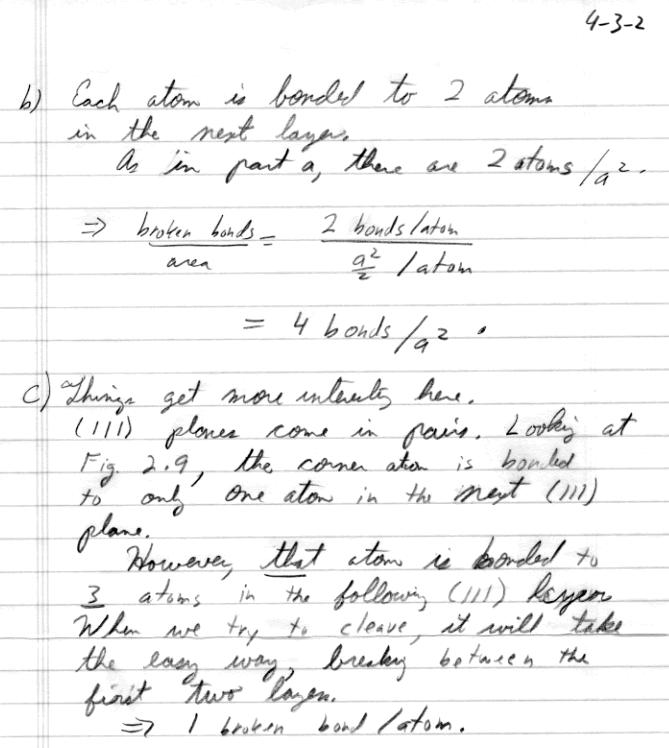 4-3-2
b) Each atom is bonded to 2 atoms
in the next layer.
As in part a, there are 2 atoms/a².
⇒ broken bonds/area = 2 bonds/atom / (a²/2 /atom)
= 4 bonds/a².
c) Things get more interesting here.
(111) planes come in pairs. Looking at
Fig. 2.9, the corner atom is bonded
to only one atom in the next (111)
plane.
However, that atom is bonded to
3 atoms in the following (111) layer.
When we try to cleave, it will take
the easy way, breaking between the
first two layers.
⇒ 1 broken bond/atom.